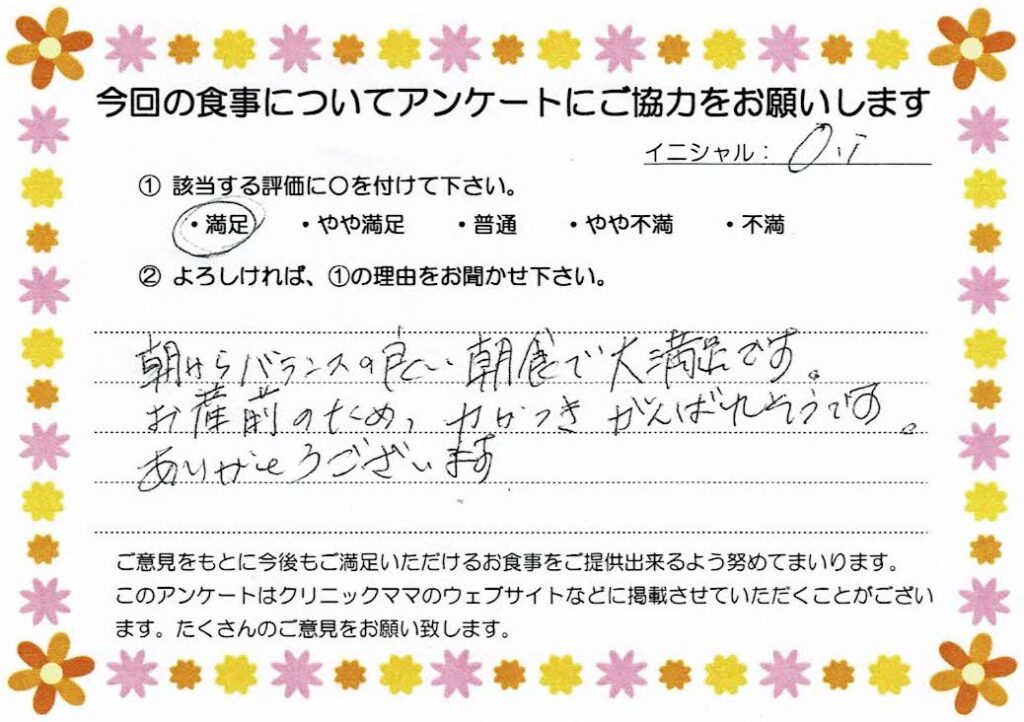 今回の食事についてアンケートにご協力をお願いします
イニシャル：O.i
① 該当する評価に〇を付けて下さい。
・満足 ・やや満足 ・普通 ・やや不満 ・不満
② よろしければ、①の理由をお聞かせ下さい。
朝からバランスの良い朝食で大満足です。
お産前のため、力がつき がんばれそうです。
ありがとうございます
ご意見をもとに今後もご満足いただけるお食事をご提供出来るよう努めてまいります。
このアンケートはクリニックママのウェブサイトなどに掲載させていただくことがござい
ます。たくさんのご意見をお願い致します。